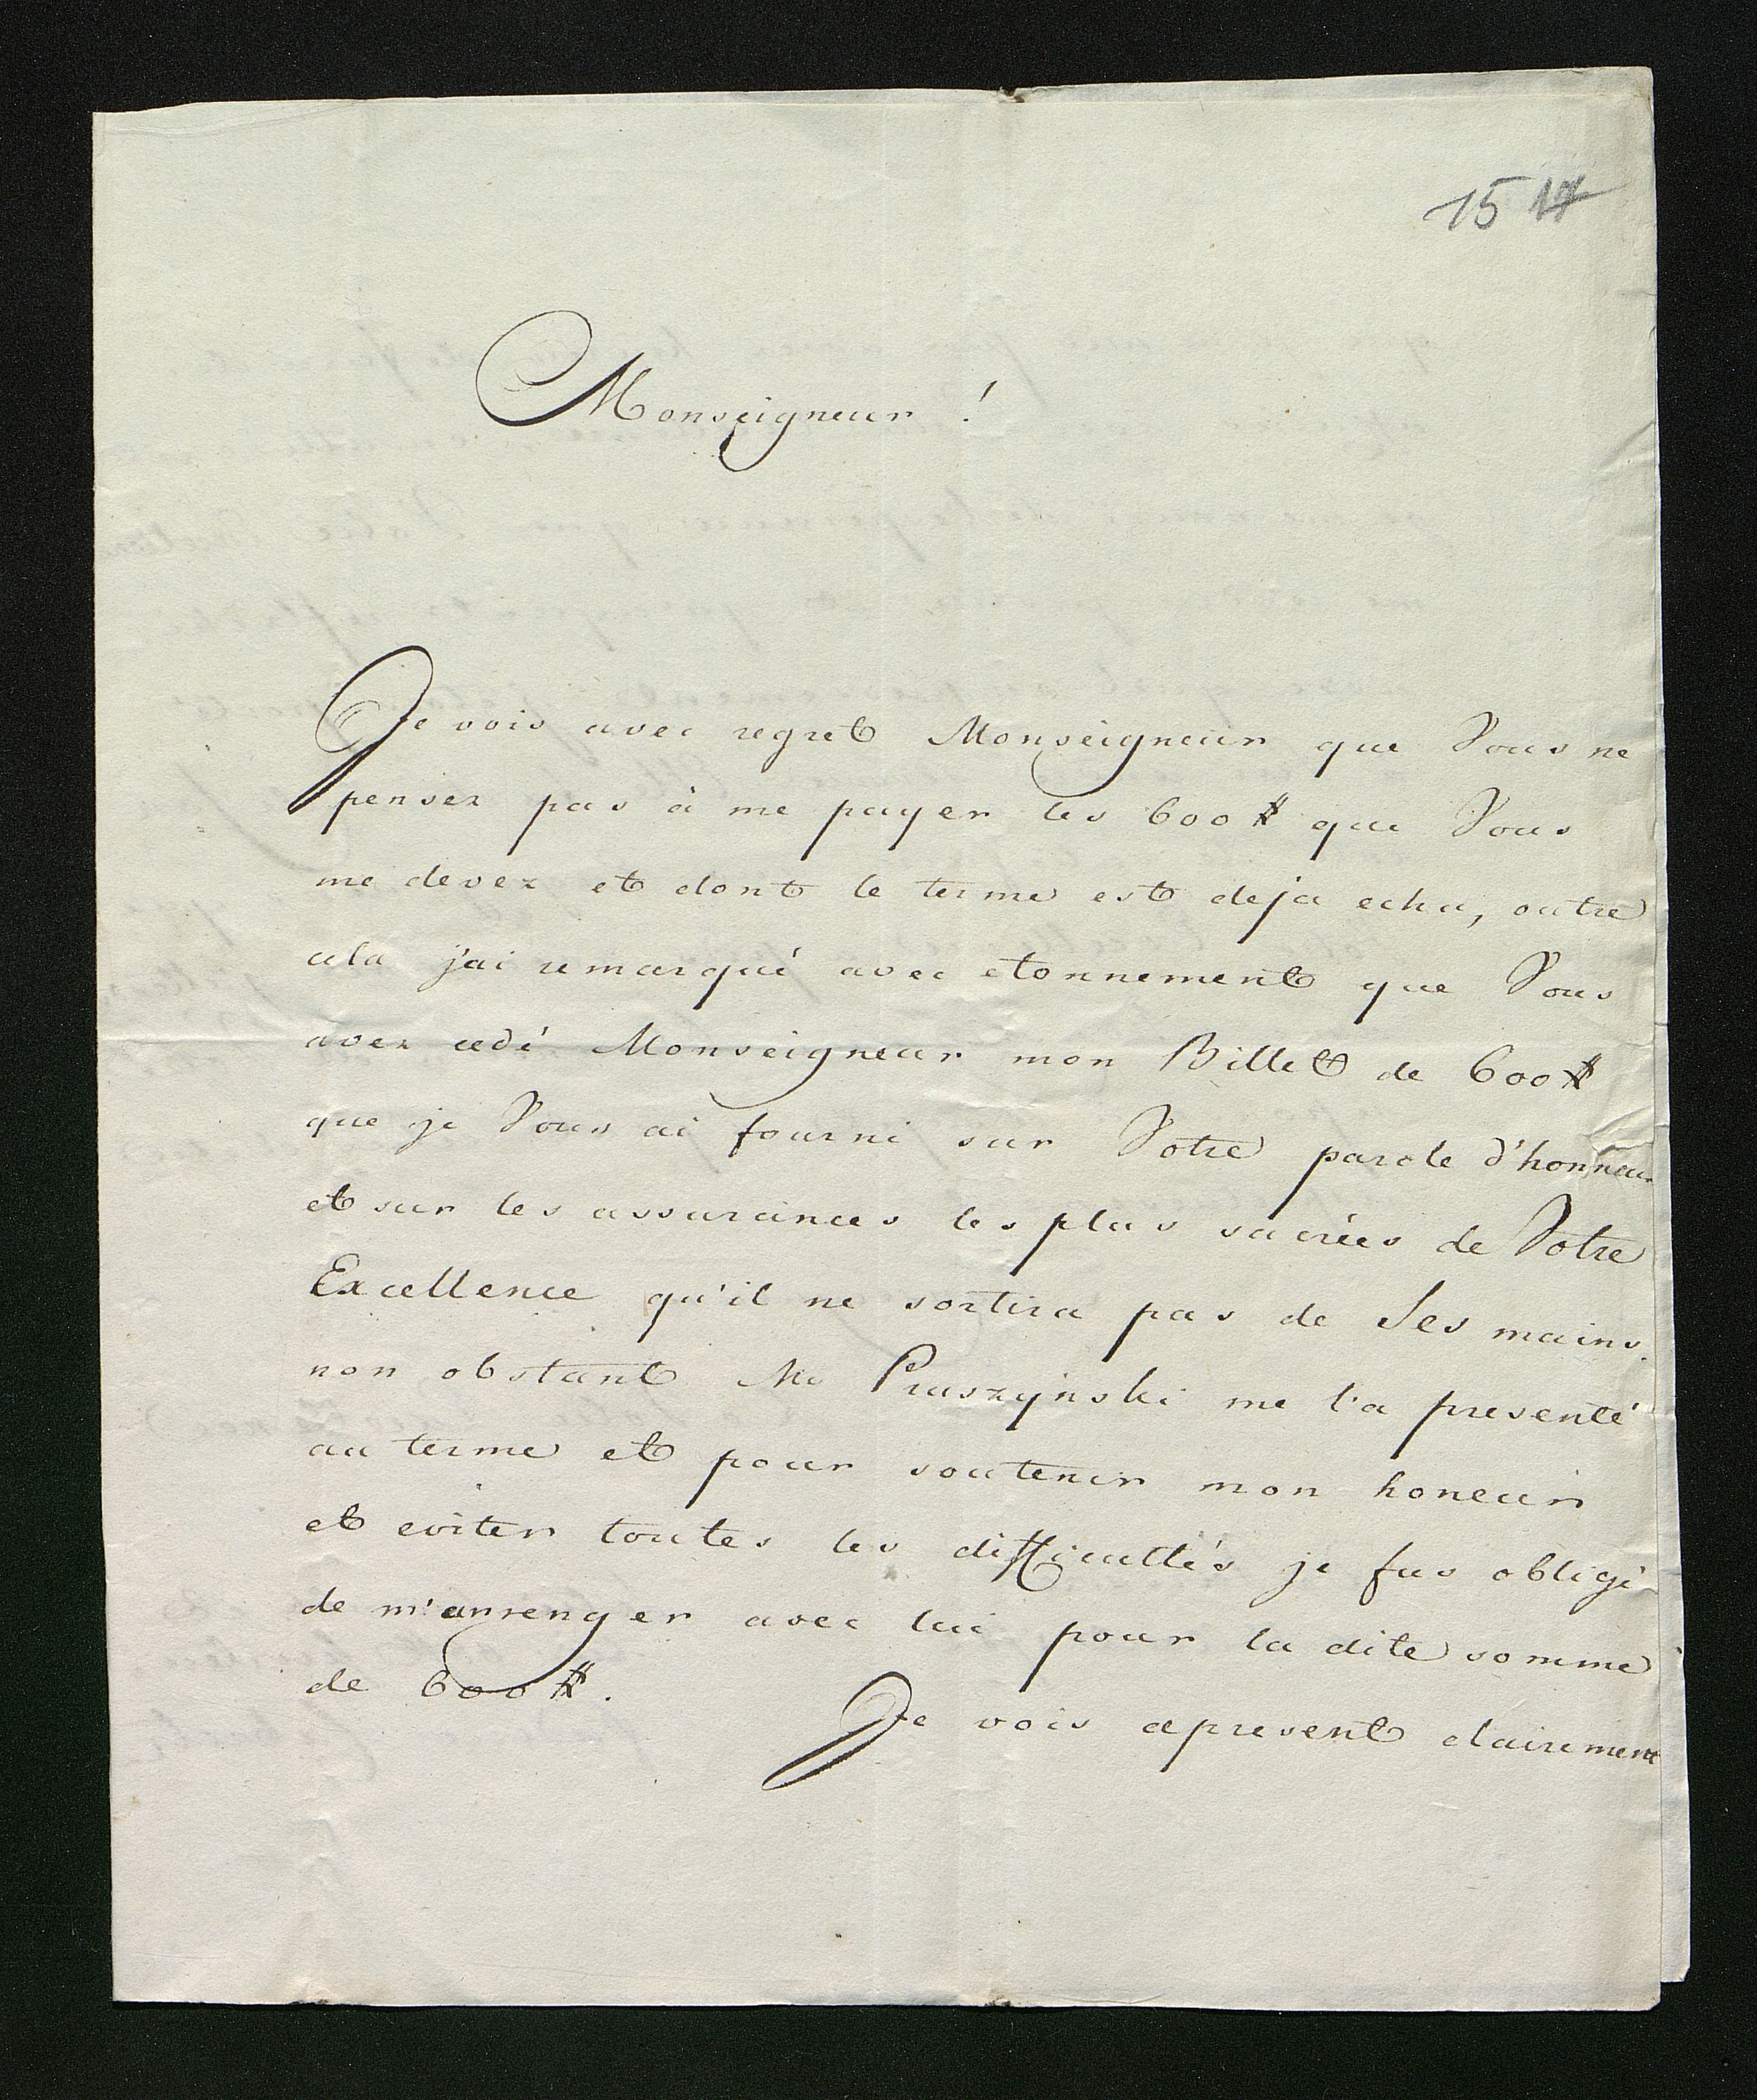 15 17
Monseigneur !
Je vois avec regret Monseigneur que Vous ne
pensez pas à me payer les 600 # que Vous
me devez et dont le terme est deja echu, outre
cela j'ai remarqué avec etonnement que Vous
avez cedé Monseigneur mon Billet de 600 #
que je Vous ai fourni sur Votre parole d'honneur
et sur les assurances les plus sacrées de Votre
Excellence qu'il ne sortira pas de Ses mains.
non obstant Mr Pruszyński me l'a presenté
au terme et pour soutenir mon honeur
et eviter toutes les difficultés je fus obligé
de m'arrenger avec lui pour la dite somme
de 600 #.
Je vois apresent clairement